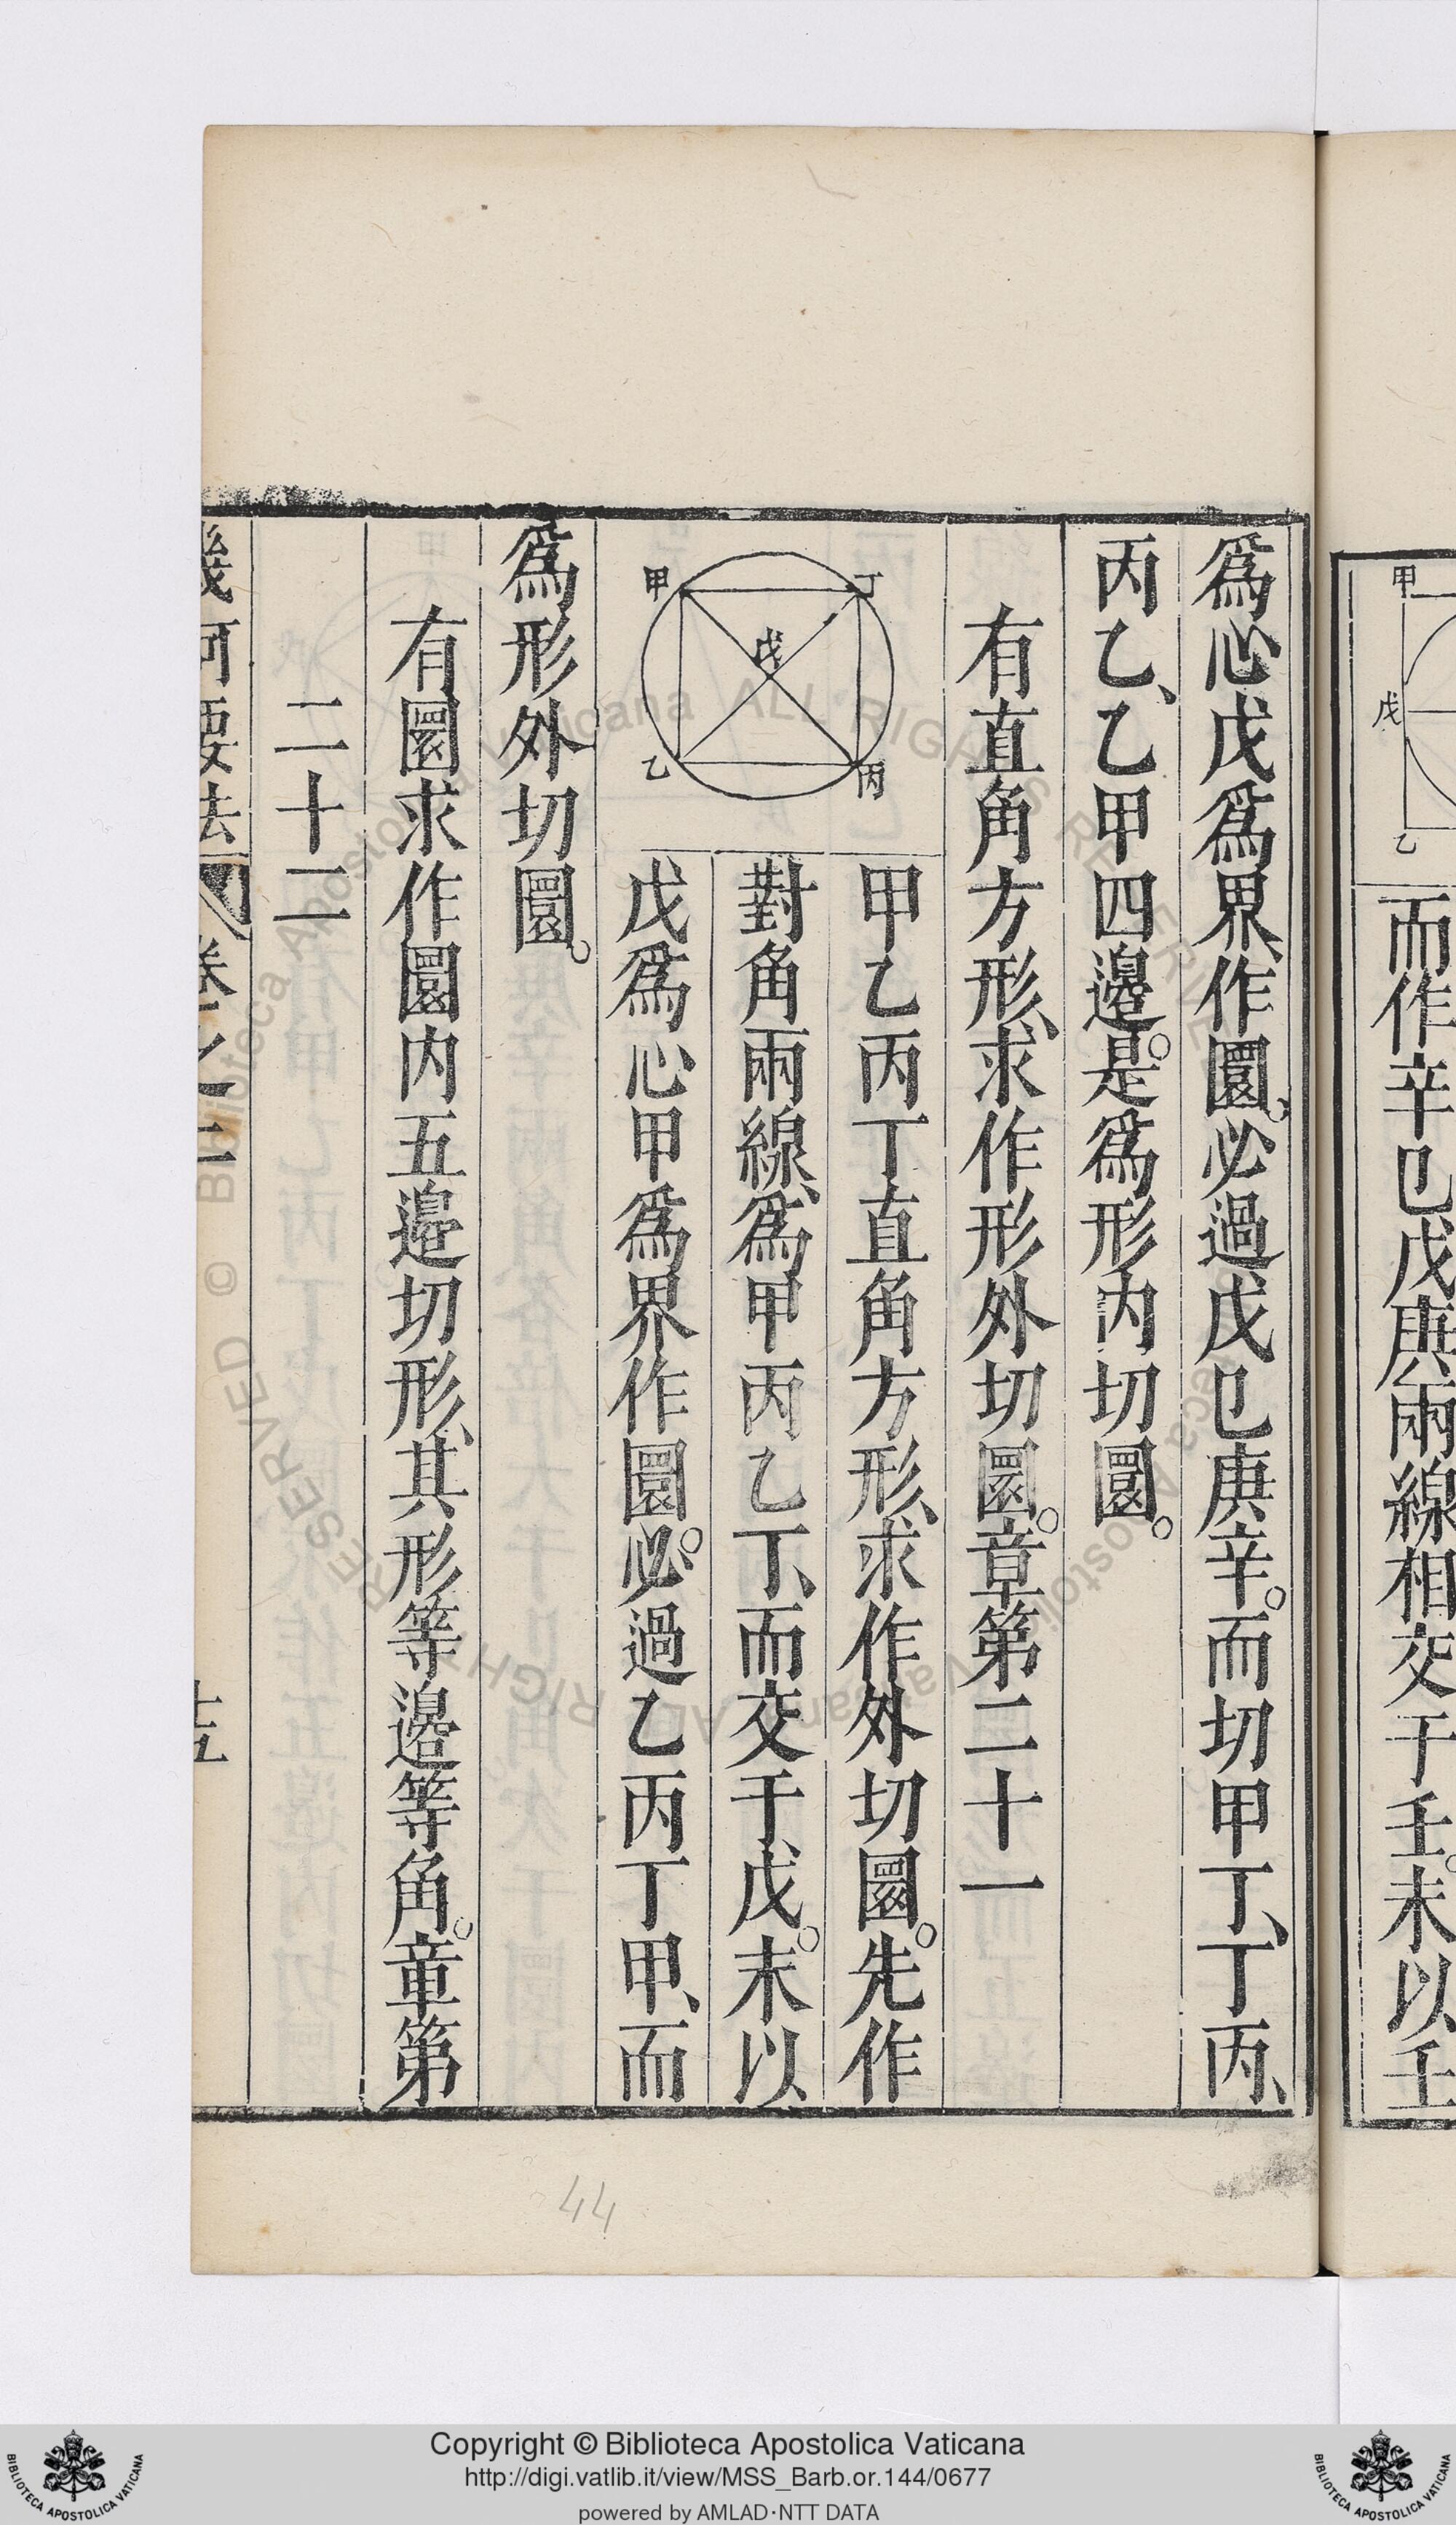 甲
戊
乙
而作辛已戊庚兩線相交于壬。末以壬
爲心戊爲界、作圜、必過戊已庚辛。而切甲丁、丁丙、
丙乙、乙甲四邊。是爲形內切圜。
有直角方形、求作形外切圜。章第二十一
甲
丁
戊
乙
丙
甲乙丙丁直角方形、求作外切圜。先作
對角兩線、爲甲丙乙丁、而交于戊。末以
戊爲心甲爲界作圜。必過乙丙丁甲、而
爲形外切圜。
有圜求作圜内五邊切形、其形等邊等角。章第
二十二
幾何要法
卷之三
十五
44
Copyright © Biblioteca Apostolica Vaticana
http://digi.vatlib.it/view/MSS_Barb.or.144/0677
powered by AMLAD·NTT DATA
BIBLIOTECA APOSTOLICA VATICANA
BIBLIOTECA APOSTOLICA VATICANA